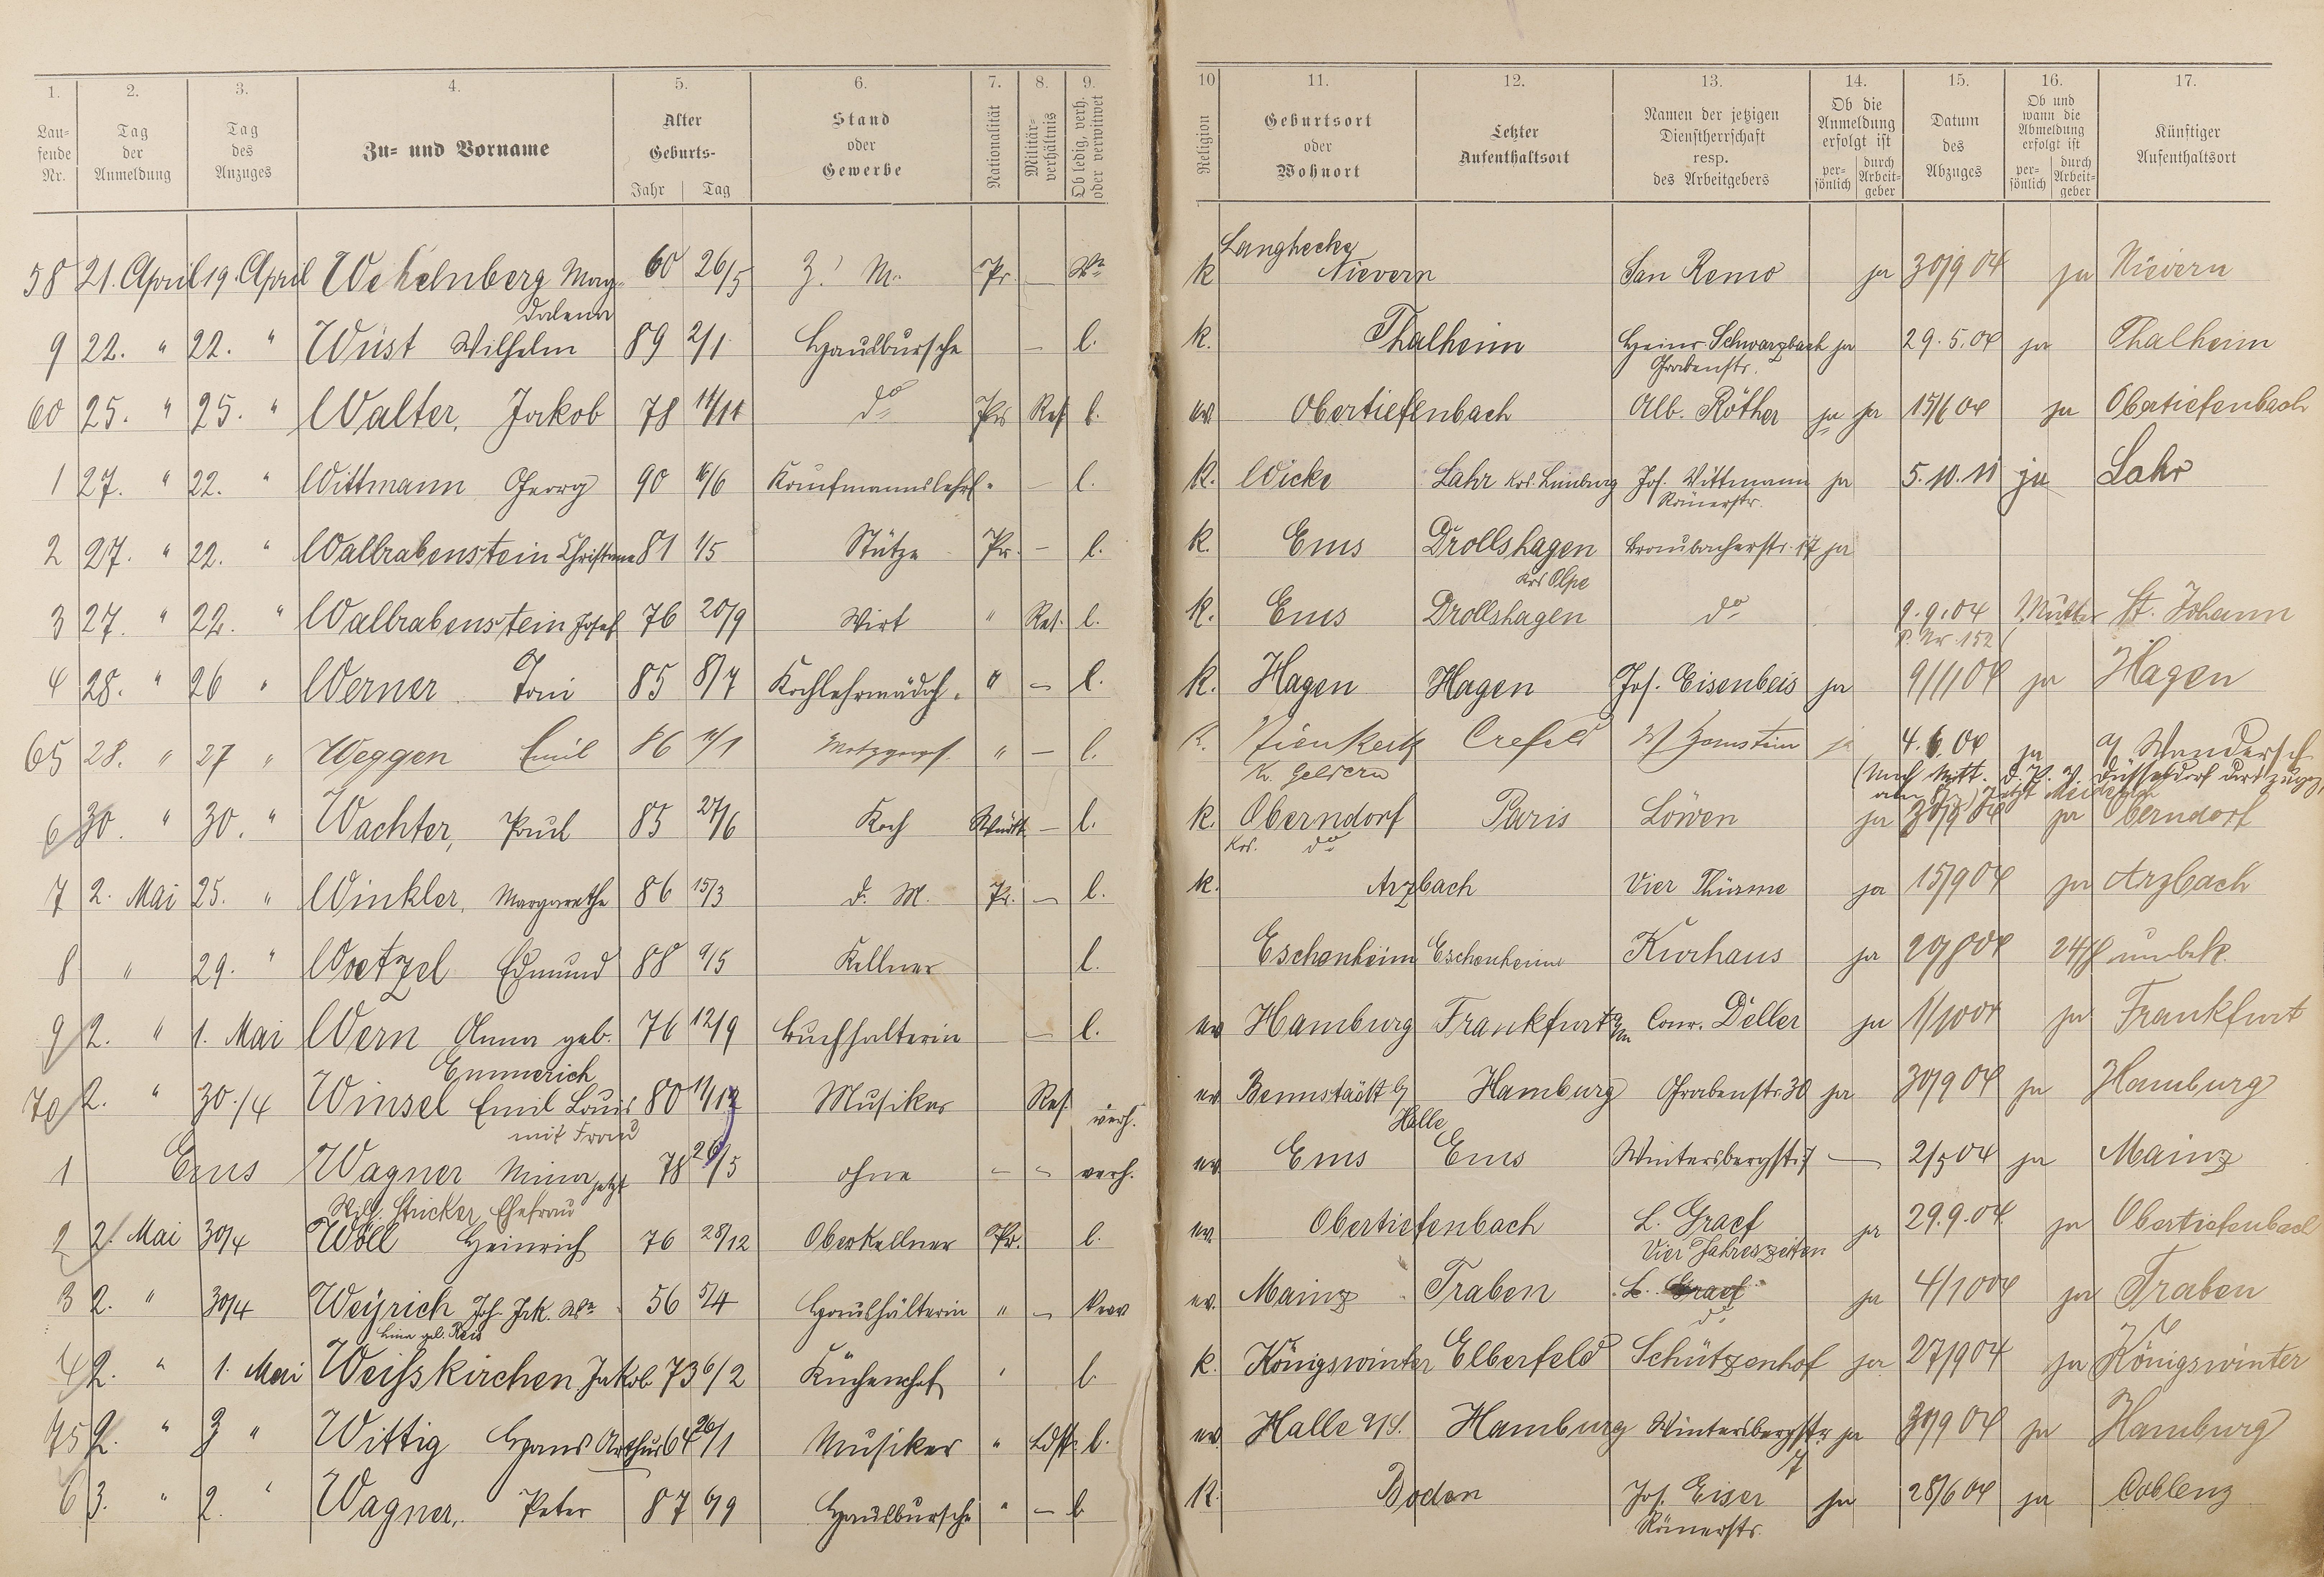 1. 2. 3. 4. 5. 6. 7. 8. 9. 10 11. 12. 13. 14. 15. 16. 17.
Lau-fende Nr. Tag der Anmeldung Tag des Anzuges Zu- und Vorname Alter Geburts- Jahr Tag Stand oder Gewerbe Nationalität Militär-verhältnis Ob ledig, verh. oder verwitwet Religion Geburtsort oder Wohnort Letzter Aufenthaltsort Namen der jetzigen Dienstherrschaft resp. des Arbeitgebers Ob die Anmeldung erfolgt ist per-sönlich durch Arbeit-geber Datum des Abzuges Ob und wann die Abmeldung erfolgt ist per-sönlich durch Arbeit-geber Künftiger Aufenthaltsort
Langhecke
58 21. April 19. April Wehelnberg Mag- 60 26/5 Z. M. Pr. — Ww k Nievern San Remo ja 30/9 04 ja Nievern
dalena
9 22. " 22. " Wüst Wilhelm 89 2/1 Hausbursche — l. k. Thalheim Heinr. Schwarzbach ja 29.5.04 ja Thalheim
Grabenstr.
60 25. " 25. " Walter, Jakob 78 11/11 do Prs Res l. ev. Obertiefenbach Alb. Röther ja ja 15/6 04 ja Obertiefenbach
1 27. " 22. " Wittmann Georg 90 16/6 Kaufmannslehrl. — l. K. Wicke Lahr Krs. Limburg Jos. Wittmann ja 5.10.11 ja Lahr
Römerstr.
2 27. " 22. " Wallrabenstein Christine 81 1/5 Stütze Pr. — l. k. Ems Drollshagen Braubacherstr. 17 ja
Krs Olpe
3 27. " 22. " Wallrabenstein Josef 76 20/9 Wirt " Res. l. k. Ems Drollshagen do 9.9.04 Mutter St. Johann
P. Nr. 152
4 28. " 26 " Werner Toni 85 8/7 Kochlehrmädch. " — l. k. Hagen Hagen Jos. Eisenbeis ja 9/11 04 ja Hagen
65 28. " 27 " Weggen Emil 86 11/1 Metzgerges. " — l. k. Nieukerk Crefeld ja 4.6.04 ja a/ Wandersch
Kr. Geldern (Nach Mitt. d. P. V. Düsseldorf dort zugez.
6 30. " 30. " Wachter, Paul 85 27/6 Koch Württ — l. k. Oberndorf Paris Löwen ja 30/9 04 ja Oberndorf
Krs. do
7 2. Mai 25. " Winkler, Margarethe 86 15/3 d. M. Pr. — l. k. Arzbach Vier Thürme ja 15/9 04 ja Arzbach
8 " 29. " Woetzel Edmund 88 9/5 Kellner l. Eschenheim Eschenheim Kurhaus ja 20/8 04 24/8 unbek.
9 2. " 1. Mai Wern Anna geb. 76 12/9 Buchhalterin — l. ev Hamburg Frankfurt a/M Conr. Deller ja 1/10 04 ja Frankfurt
Emmerich
70 2. " 30./4 Winsel Emil Louis 80 11/12 Musiker Res. verh. ev Bennstädt b/ Hamburg Grabenstr. 30 ja 30/9 04 ja Hamburg
mit Frau Halle
1 Ems Wagner Mina jetzt 78 26/5 ohne - - verh. ev Ems Ems Wintersbergstr. 7 — 2/5 04 ja Mainz
Wilh. Stücker Ehefrau
2 2. Mai 30/4 Wöll Heinrich 76 28/12 Oberkellner Pr. l. ev. Obertiefenbach L. Graef ja 29.9.04. ja Obertiefenbach
Vier Jahreszeiten
3 2. " 30/4 Weyrich Joh. Jak. Ww. 56 5/4 Haushälterin " — verw ev. Mainz Traben L. Graef ja 4/10 04 ja Traben
Lina geb. Reis do
4 2. " 1. Mai Weisskirchen Jakob 73 6/2 Küchenchef " l k. Königswinter Elberfeld Schützenhof ja 27/9 04 ja Königswinter
75 2. " 2 " Wittig Hans Arthur 64 26/1 Musiker " Ldst. l. ev. Halle a/S. Hamburg Wintersbergstr. ja 30/9 04 ja Hamburg
7
6 3. " 2. " Wagner, Peter 87 6/9 Hausbursche " — l K. Boden Jos. Eiser ja 28/6 04 ja Coblenz
Römerstr.